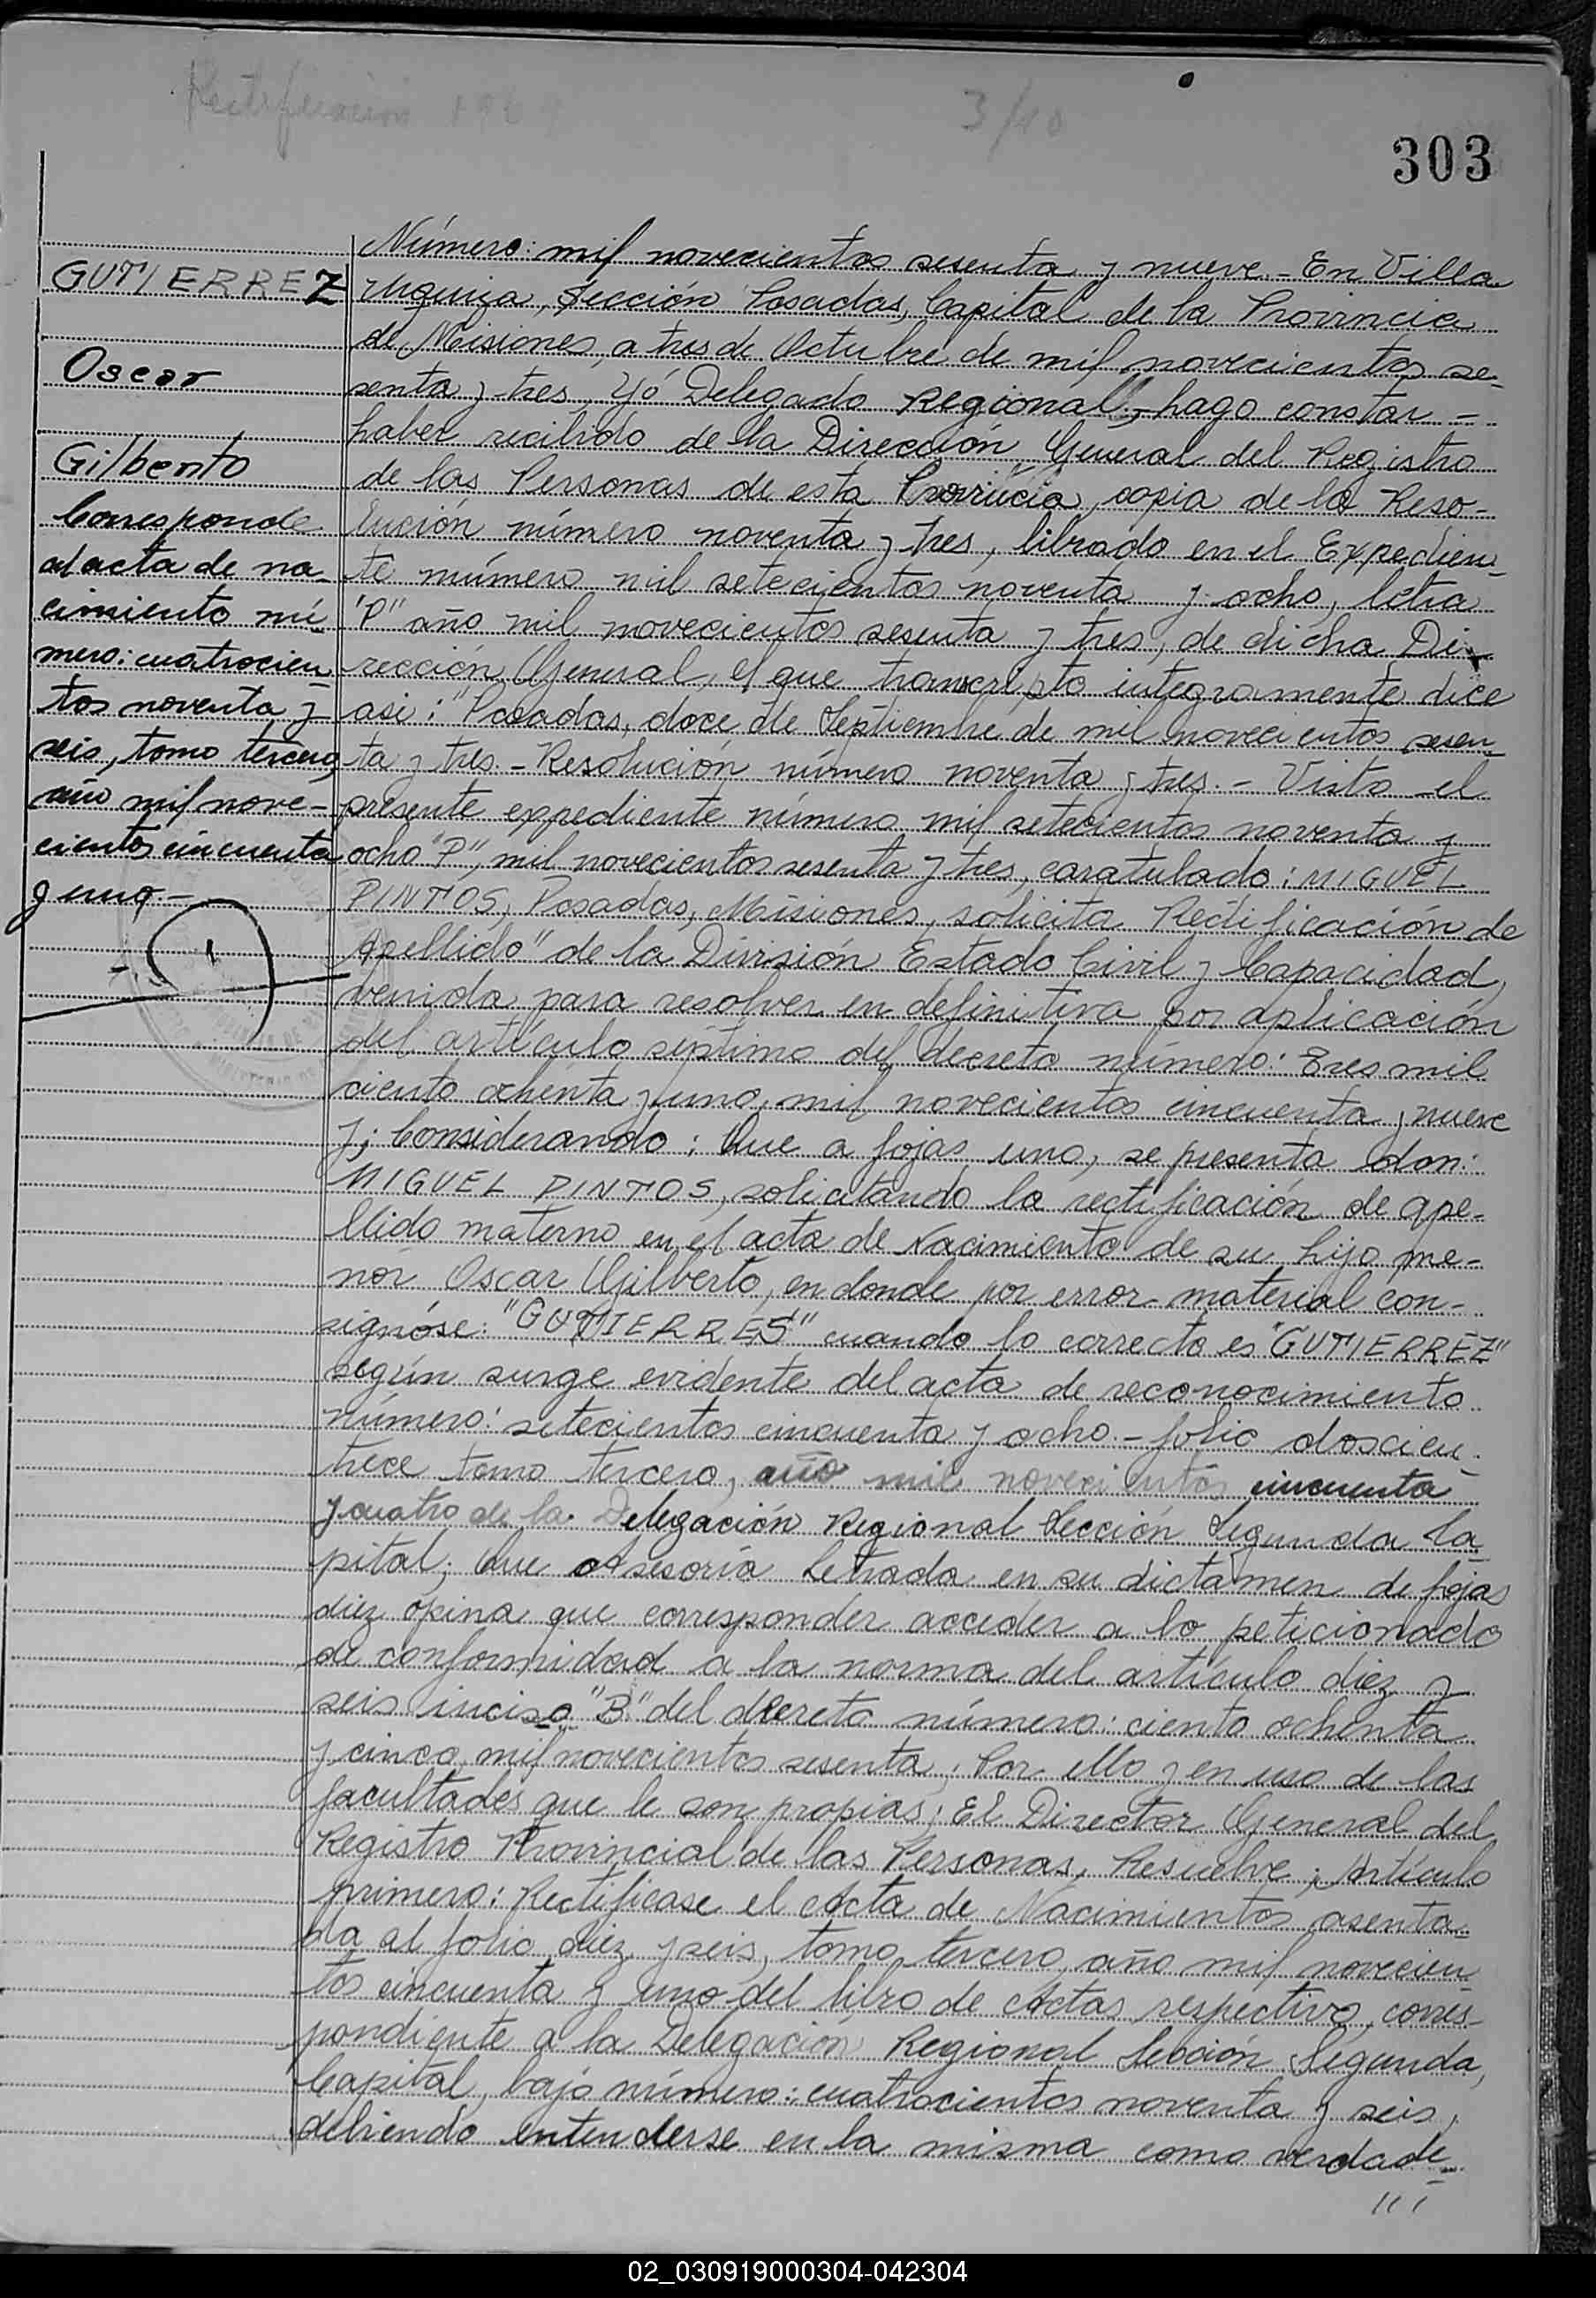 Rectificación 196
3/10
303
GUTIERREZ
Oscar
Gilberto
Corresponde
al acta de na-
cimiento nú-
mero: cuatrocien-
tos noventa y
seis, tomo tercero,
año mil nove-
cientos cincuenta
y uno.-
Número: mil novecientos sesenta y nueve.- En Villa
Urquiza, Sección Posadas, Capital de la Provincia
de Misiones, a tres de Octubre de mil novecientos se-
senta y tres, Yó Delegado Regional, hago constar -
haber recibido de la Dirección General del Registro
de las Personas de esta Provincia, copia de la Reso-
lución número noventa y tres, librado en el Expedien-
te número mil setecientos noventa y ocho, letra
"P" año mil novecientos sesenta y tres, de dicha Di-
rección General, el que transcripto integramente dice
asi: "Posadas, doce de Septiembre de mil novecientos sesen-
ta y tres.- Resolución número noventa y tres.- Visto el
presente expediente número mil setecientos noventa y
ocho "P", mil novecientos sesenta y tres, caratulado: MIGUEL
PINTOS, Posadas, Misiones, solicita Rectificación de
Apellido" de la División Estado Civil y Capacidad,
venida para resolver en definitiva por aplicación
del artículo séptimo del decreto número: tres mil
ciento ochenta y uno, mil novecientos cincuenta y nueve
y; Considerando: Que a fojas uno, se presenta don:
MIGUEL PINTOS, solicitando la rectificación de ape-
llido materno en el acta de Nacimiento de su hijo me-
nor Oscar Gilberto, en donde por error material con-
signóse: "GUTIERRES" cuando lo correcto es "GUTIERREZ"
según surge evidente del acta de reconocimiento
número: setecientos cincuenta y ocho - folio doscien-
trece tomo tercero, año mil novecientos cincuenta
y cuatro de la Delegación Regional Sección Segunda Ca-
pital; Que Asesoría Letrada en su dictamen de fojas
diez opina que corresponder acceder a lo peticionado
de conformidad a la norma del artículo diez y
seis inciso "B" del decreto número: ciento ochenta
y cinco, mil novecientos sesenta; Por ello y en uso de las
facultades que le son propias; El Director General del
Registro Provincial de las Personas, Resuelve; Artículo
primero: Rectificase el Acta de Nacimientos asenta-
da al folio diez y seis, tomo tercero, año mil novecien-
tos cincuenta y uno del libro de Actas respectivo, corres-
pondiente a la Delegación Regional Sección Segunda,
Capital, bajo número: cuatrocientos noventa y seis,
debiendo entenderse en la misma como verdade-
///
02_030919000304-042304